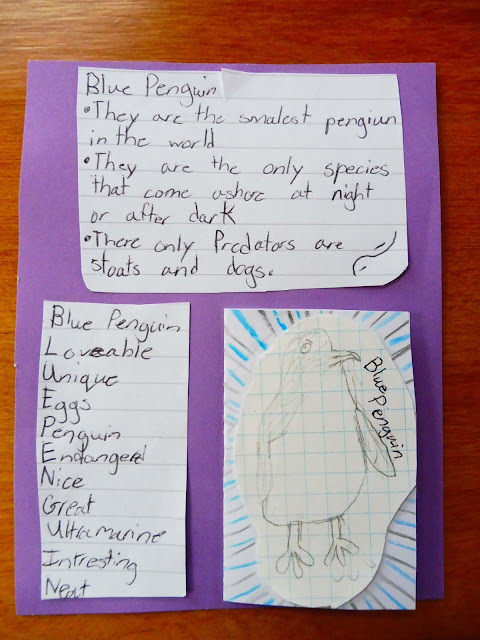 Blue Penguin
•They are the smalest pengiun
in the world
•They are the only species
that come ashore at night
or after dark
•There only Predators are
stoats and dogs.
Blue Penguin
Loveable
Unique
Eggs
Penguin
Endangered
Nice
Great
Ultramarine
Intresting
Neat
Blue Penguin